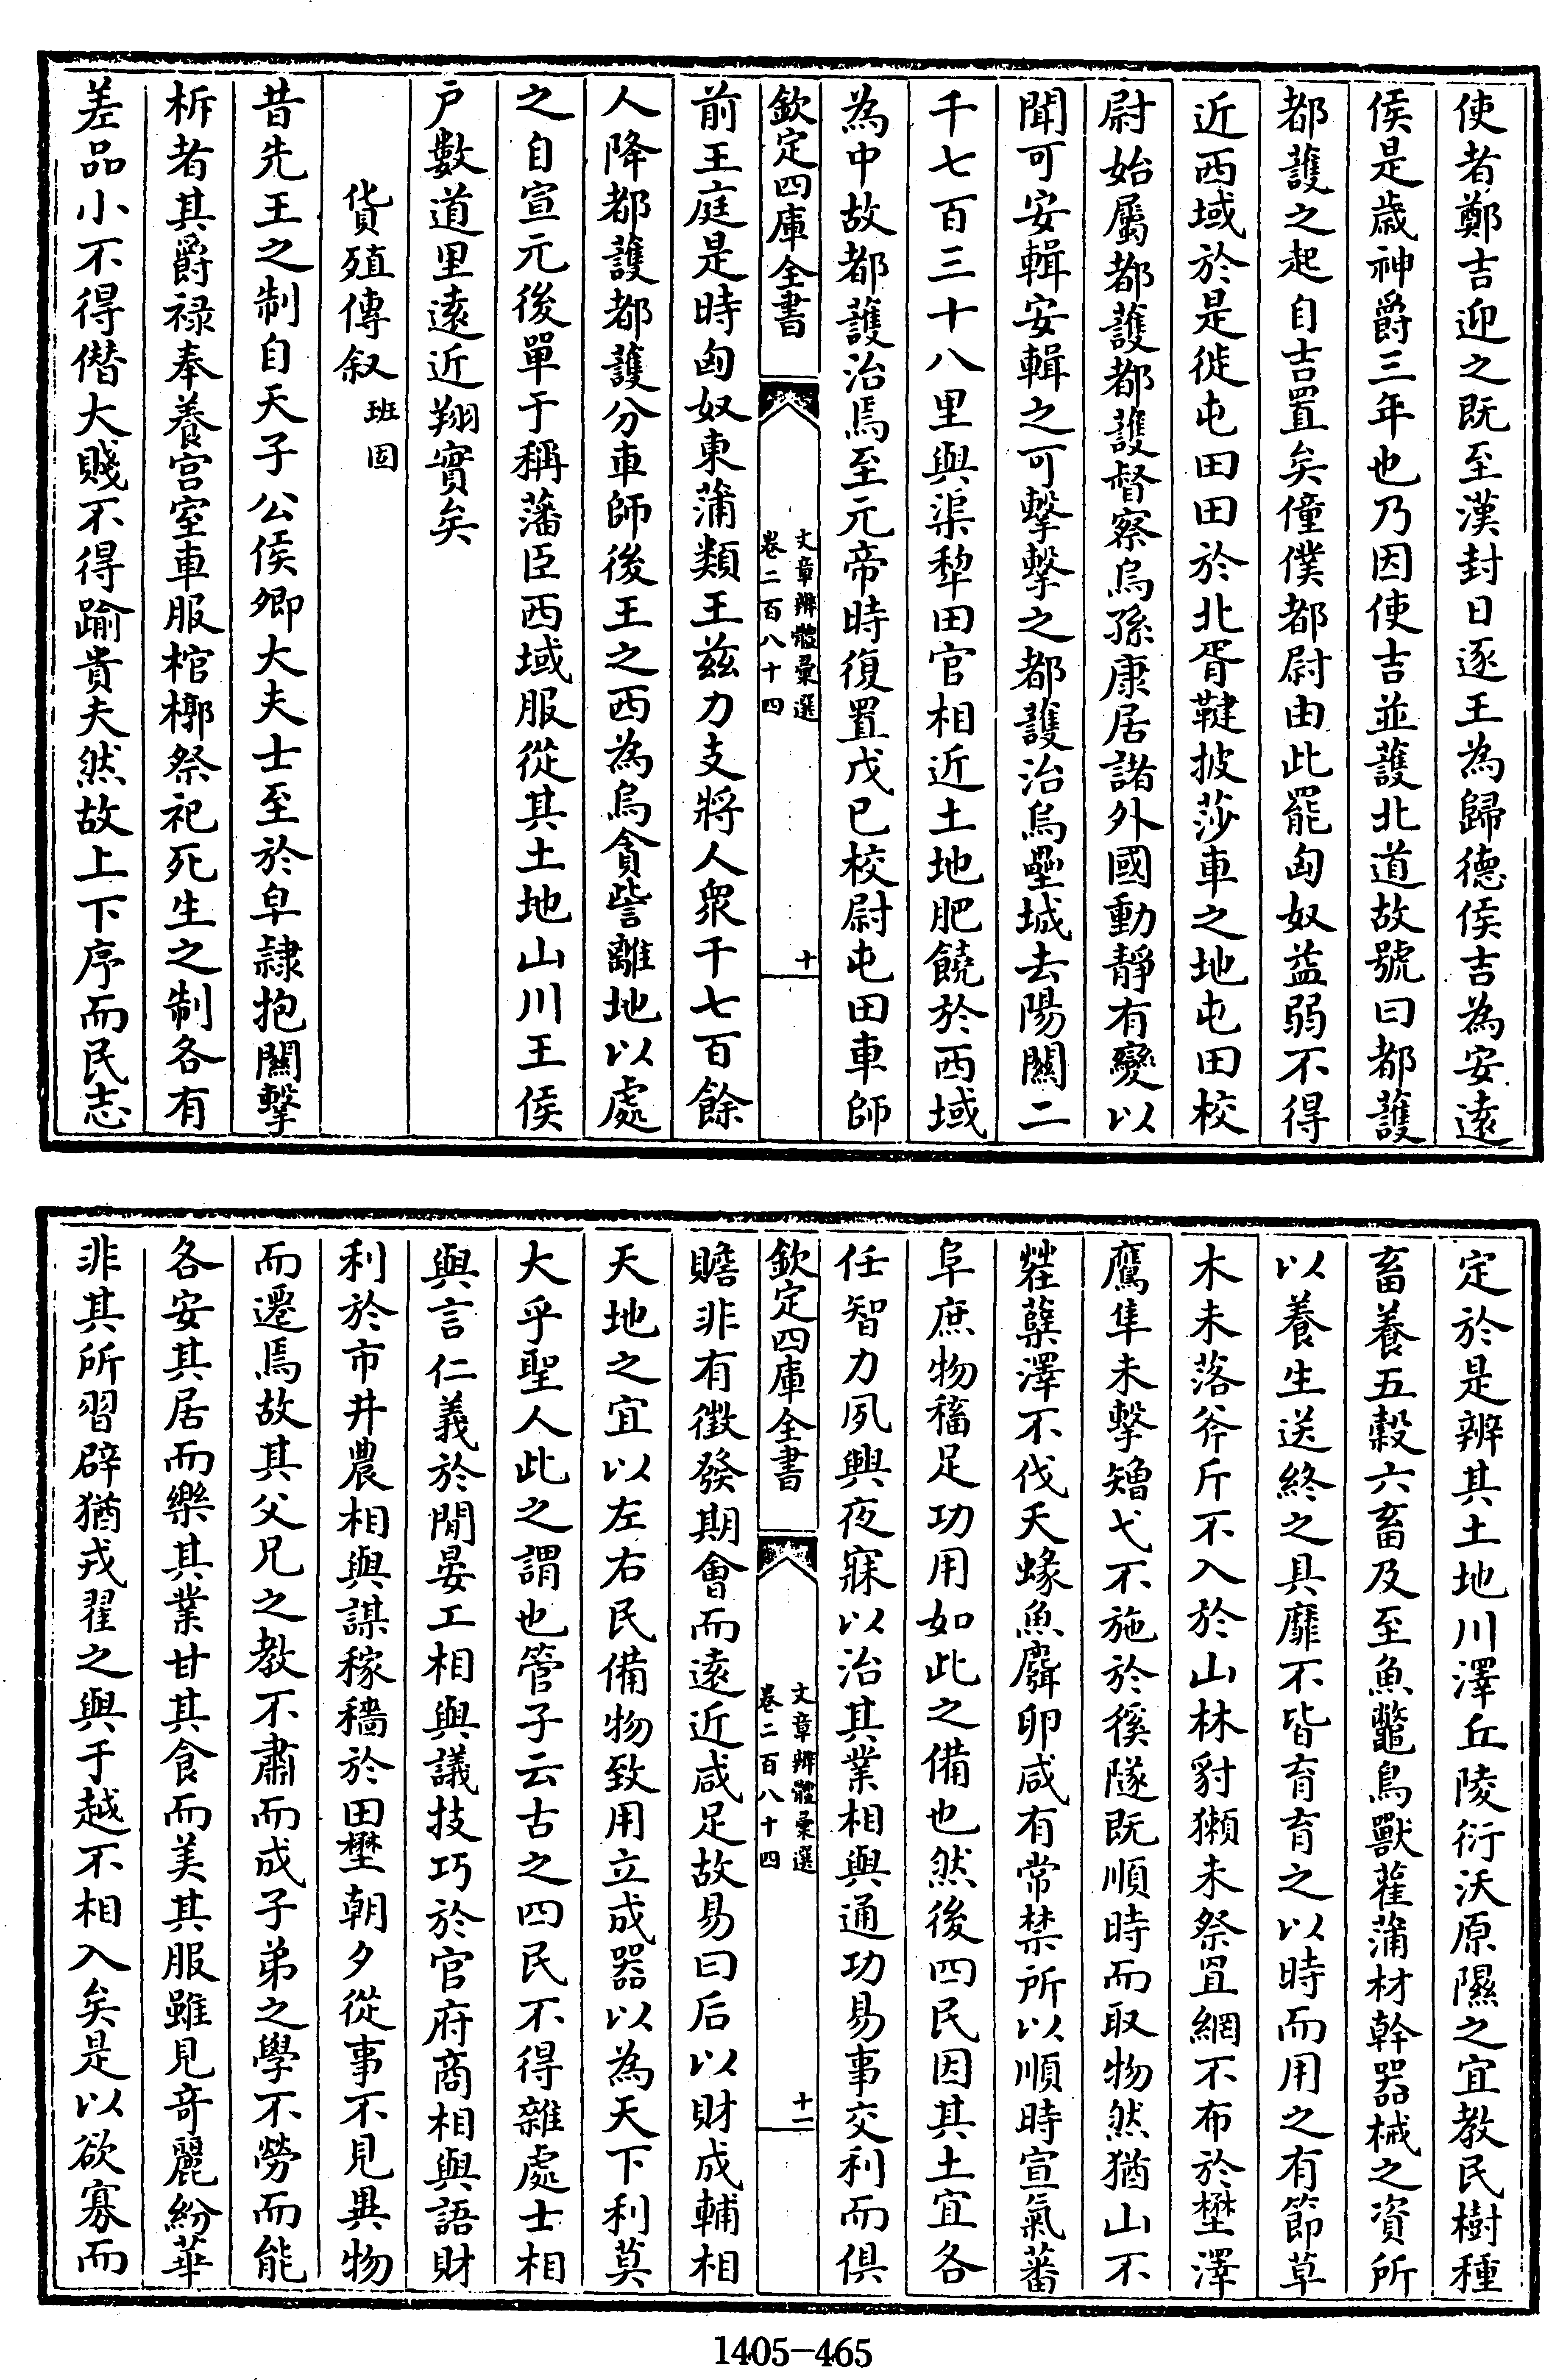 使者鄭吉迎之既至漢封日逐王為歸德侯吉為安遠
侯是歲神爵三年也乃因使吉並護北道故號曰都護
都護之起自吉置矣僮僕都尉由此罷匈奴益弱不得
近西域於是徙屯田田於北胥鞬披莎車之地屯田校
尉始屬都護都護督察烏孫康居諸外國動靜有變以
聞可安輯安輯之可擊擊之都護治烏壘城去陽關二
千七百三十八里與渠犂田官相近土地肥饒於西域
為中故都護治焉至元帝時復置戊已校尉屯田車師
欽定四庫全書
文章辨體彙選
卷二百八十四
十
前王庭是時匈奴東蒲類王茲力支將人衆千七百餘
人降都護都護分車師後王之西為烏貪訾離地以處
之自宣元後單于稱藩臣西域服從其土地山川王侯
戶數道里遠近翔實矣
貨殖傳叙 班固
昔先王之制自天子公侯卿大夫士至於皁隷抱關擊
柝者其爵禄奉養宫室車服棺槨祭祀死生之制各有
差品小不得僭大賤不得踰貴夫然故上下序而民志
定於是辨其土地川澤丘陵衍沃原隰之宜教民樹種
畜養五穀六畜及至魚鼈鳥獸雚蒲材幹器械之資所
以養生送終之具靡不皆育育之以時而用之有節草
木未落斧斤不入於山林豺獺未祭罝網不布於壄澤
鷹隼未擊矰弋不施於徯隧既順時而取物然猶山不
茬蘖澤不伐夭蝝魚麛卵咸有常禁所以順時宣氣蕃
阜庶物稸足功用如此之備也然後四民因其土宜各
任智力夙興夜寐以治其業相與通功易事交利而俱
欽定四庫全書
文章辨體彙選
卷二百八十四
十一
贍非有徵發期會而遠近咸足故易曰后以財成輔相
天地之宜以左右民備物致用立成器以為天下利莫
大乎聖人此之謂也管子云古之四民不得雜處士相
與言仁義於閒晏工相與議技巧於官府商相與語財
利於市井農相與謀稼穡於田壄朝夕從事不見異物
而遷焉故其父兄之教不肅而成子弟之學不勞而能
各安其居而樂其業甘其食而美其服雖見竒麗紛華
非其所習辟猶戎翟之與于越不相入矣是以欲寡而
1405-465